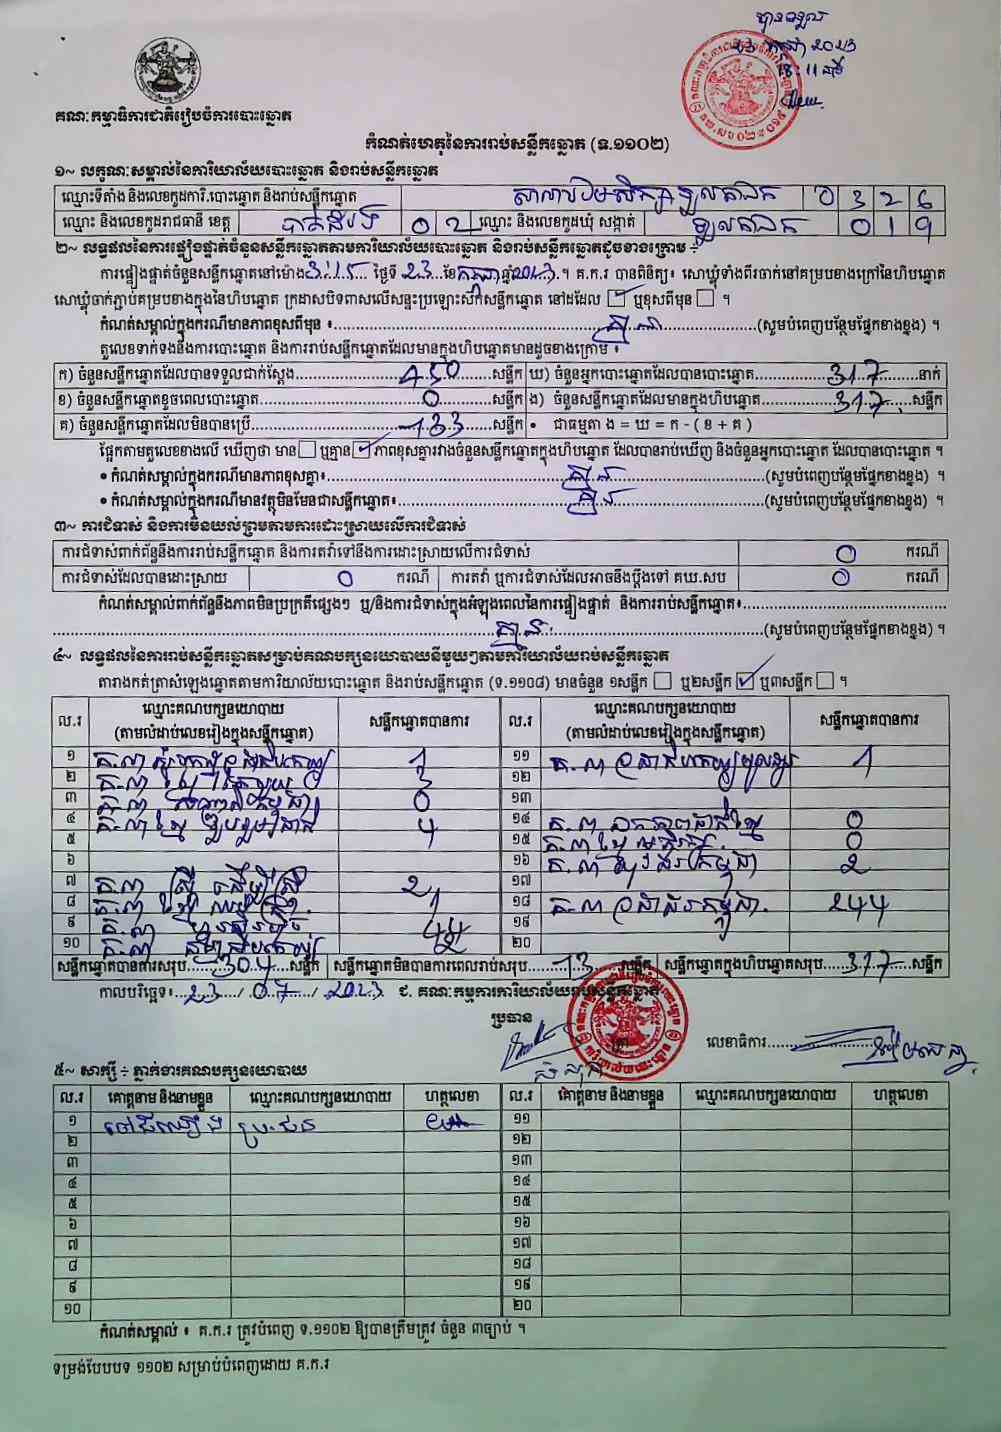 2023
18:11
គណៈកម្មាធិការជាតិរៀបចំការបោះឆ្នោត
កំណត់ហេតុនៃការរាប់សន្លឹកឆ្នោត (ទ.១១០២)
១~ លក្ខណៈសម្គាល់នៃការិយាល័យបោះឆ្នោត និងរាប់សន្លឹកឆ្នោត
ឈ្មោះទីតាំង និងលេខកូដការិ.បោះឆ្នោត និងរាប់សន្លឹកឆ្នោត សាលាបឋមសិក្សា 0 3 2 6
ឈ្មោះ និងលេខកូដរាជធានី ខេត្ត បាត់ដំបង 0 2 ឈ្មោះ និងលេខកូដឃុំ សង្កាត់ 0 1 9
២~ លទ្ធផលនៃការផ្ទៀងផ្ទាត់ចំនួនសន្លឹកឆ្នោតតាមការិយាល័យបោះឆ្នោត និងរាប់សន្លឹកឆ្នោតដូចខាងក្រោម ÷
ការផ្ទៀងផ្ទាត់ចំនួនសន្លឹកឆ្នោតនៅម៉ោង 3:15 ថ្ងៃទី 23 ខែ កក្កដា ឆ្នាំ 2023 ។ គ.ក.រ បានពិនិត្យ៖ សោឃ្លុំទាំងពីរចាក់នៅគម្របខាងក្រៅនៃហិបឆ្នោត
សោឃ្លុំចាក់ភ្ជាប់គម្របខាងក្នុងនៃហិបឆ្នោត ក្រដាសបិទពាសលើសន្ទះប្រឡោះសៀតសន្លឹកឆ្នោត នៅដដែល ☑ ឬខុសពីមុន ☐ ។
កំណត់សម្គាល់ក្នុងករណីមានភាពខុសពីមុន ៖ គ្មាន (សូមបំពេញបន្ថែមផ្នែកខាងខ្នង) ។
តួលេខទាក់ទងនឹងការបោះឆ្នោត និងការរាប់សន្លឹកឆ្នោតដែលមានក្នុងហិបឆ្នោតមានដូចខាងក្រោម ៖
ក) ចំនួនសន្លឹកឆ្នោតដែលបានទទួលជាក់ស្តែង 450 សន្លឹក ឃ) ចំនួនអ្នកបោះឆ្នោតដែលបានបោះឆ្នោត 317 នាក់
ខ) ចំនួនសន្លឹកឆ្នោតខូចពេលបោះឆ្នោត 0 សន្លឹក ង) ចំនួនសន្លឹកឆ្នោតដែលមានក្នុងហិបឆ្នោត 317 សន្លឹក
គ) ចំនួនសន្លឹកឆ្នោតដែលមិនបានប្រើ 133 សន្លឹក • ជាធម្មតា ង = ឃ = ក - ( ខ + គ )
ផ្អែកតាមតួលេខខាងលើ ឃើញថា មាន ☐ ឬគ្មាន ☑ ភាពខុសគ្នារវាងចំនួនសន្លឹកឆ្នោតក្នុងហិបឆ្នោត ដែលបានរាប់ឃើញ និងចំនួនអ្នកបោះឆ្នោត ដែលបានបោះឆ្នោត ។
• កំណត់សម្គាល់ក្នុងករណីមានភាពខុសគ្នា៖ គ្មាន (សូមបំពេញបន្ថែមផ្នែកខាងខ្នង) ។
• កំណត់សម្គាល់ក្នុងករណីមានវត្ថុមិនមែនជាសន្លឹកឆ្នោត៖ គ្មាន (សូមបំពេញបន្ថែមផ្នែកខាងខ្នង) ។
៣~ ការជំទាស់ និងការមិនយល់ព្រមតាមការដោះស្រាយលើការជំទាស់
ការជំទាស់ពាក់ព័ន្ធនឹងការរាប់សន្លឹកឆ្នោត និងការតវ៉ាទៅនឹងការដោះស្រាយលើការជំទាស់ 0 ករណី
ការជំទាស់ដែលបានដោះស្រាយ 0 ករណី ការតវ៉ា ឬការជំទាស់ដែលអាចនឹងប្តឹងទៅ គឃ.សប 0 ករណី
កំណត់សម្គាល់ពាក់ព័ន្ធនឹងភាពមិនប្រក្រតីផ្សេងៗ ឬ/និងការជំទាស់ក្នុងអំឡុងពេលនៃការផ្ទៀងផ្ទាត់ និងការរាប់សន្លឹកឆ្នោត៖
គ្មាន (សូមបំពេញបន្ថែមផ្នែកខាងខ្នង) ។
៤~ លទ្ធផលនៃការរាប់សន្លឹកឆ្នោតសម្រាប់គណបក្សនយោបាយនីមួយៗតាមការិយាល័យរាប់សន្លឹកឆ្នោត
តារាងកត់ត្រាសំឡេងឆ្នោតតាមការិយាល័យបោះឆ្នោត និងរាប់សន្លឹកឆ្នោត (ទ.១១០៨) មានចំនួន ១សន្លឹក ☐ ឬ២សន្លឹក ☑ ឬ៣សន្លឹក ☐ ។
ល.រ ឈ្មោះគណបក្សនយោបាយ (តាមលំដាប់លេខរៀងក្នុងសន្លឹកឆ្នោត) សន្លឹកឆ្នោតបានការ ល.រ ឈ្មោះគណបក្សនយោបាយ (តាមលំដាប់លេខរៀងក្នុងសន្លឹកឆ្នោត) សន្លឹកឆ្នោតបានការ
១ គ.ប 1 ១១ គ.ប 1
២ គ.ប 3 ១២
៣ គ.ប 0 ១៣
៤ គ.ប ខ្មែរ 4 ១៤ គ.ប ឯកភាពជាតិខ្មែរ 0
៥ ១៥ គ.ប ខ្មែរ 0
៦ ១៦ គ.ប 2
៧ គ.ប 2 ១៧
៨ គ.ប 1 ១៨ គ.ប ប្រជាជនកម្ពុជា 244
៩ គ.ប ១៩
១០ គ.ប ២០
សន្លឹកឆ្នោតបានការសរុប 304 សន្លឹក សន្លឹកឆ្នោតមិនបានការពេលរាប់សរុប 13 សន្លឹក សន្លឹកឆ្នោតក្នុងហិបឆ្នោតសរុប 317 សន្លឹក
កាលបរិច្ឆេទ៖ 23 / 07 / 2023 ជ. គណៈកម្មការការិយាល័យរាប់សន្លឹកឆ្នោត
ប្រធាន
លេខាធិការ
៥~ សាក្សី ÷ ភ្នាក់ងារគណបក្សនយោបាយ
ល.រ គោត្តនាម និងនាមខ្លួន ឈ្មោះគណបក្សនយោបាយ ហត្ថលេខា ល.រ គោត្តនាម និងនាមខ្លួន ឈ្មោះគណបក្សនយោបាយ ហត្ថលេខា
១ ប្រជាជន ១១
២ ១២
៣ ១៣
៤ ១៤
៥ ១៥
៦ ១៦
៧ ១៧
៨ ១៨
៩ ១៩
១០ ២០
កំណត់សម្គាល់ ៖ គ.ក.រ ត្រូវបំពេញ ទ.១១០២ ឱ្យបានត្រឹមត្រូវ ចំនួន ៣ច្បាប់ ។
ទម្រង់បែបបទ ១១០២ សម្រាប់បំពេញដោយ គ.ក.រ